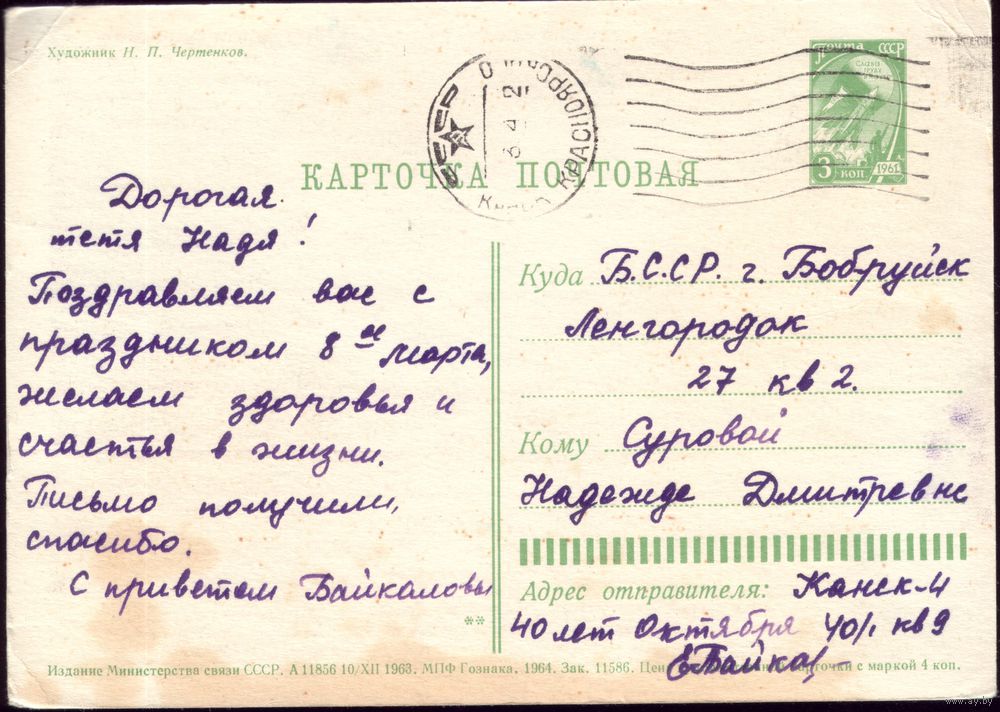 Художник Н. П. Чертенков.
Почта СССР
СЛАВА
ТРУДУ
3 коп. 1961
СССР
КРАСНОЯРСК
КАРТОЧКА ПОЧТОВАЯ
Дорогая
тетя Надя!
Поздравляем вас с
праздником 8 ое марта,
желаем здоровья и
счастья в жизни.
Письмо получили,
спасибо.
С приветом Байкаловы
**
Куда Б.С.С.Р. г. Бобруйск
Ленгородок
27 кв 2.
Кому Суровой
Надежде Дмитревне
Адрес отправителя: Канск-4
40 лет Октября 40/1 кв 9
Е Байкал
Издание Министерства связи СССР. А 11856 10/XII 1963. МПФ Гознака. 1964. Зак. 11586. карточки с маркой 4 коп.
www.ay.by